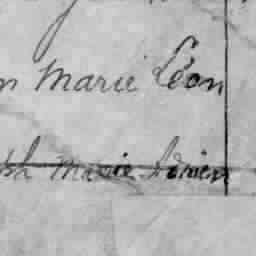 n Marie Léon
ph Marie Adrien